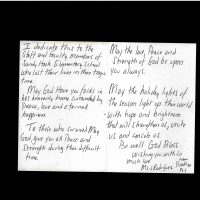 I dedicate this to the
Staff and faculty members of
Sandy Hook Elementary School
who lost their lives in that tragic
time.
May God Have you folks in
his heavenly home surrounded by
peace, love and eternal
happiness.
To those who survived May
God give you all Peace and
Strength during this difficult
time.
May the love, Peace and
Strength of God be upon
you always.
May the holiday lights of
the season light up the world
with hope and brightness
that will strengthen us, unite
us and console us.
Be well God Bless
Wishing you with so
much love
Ms. Rodriguez